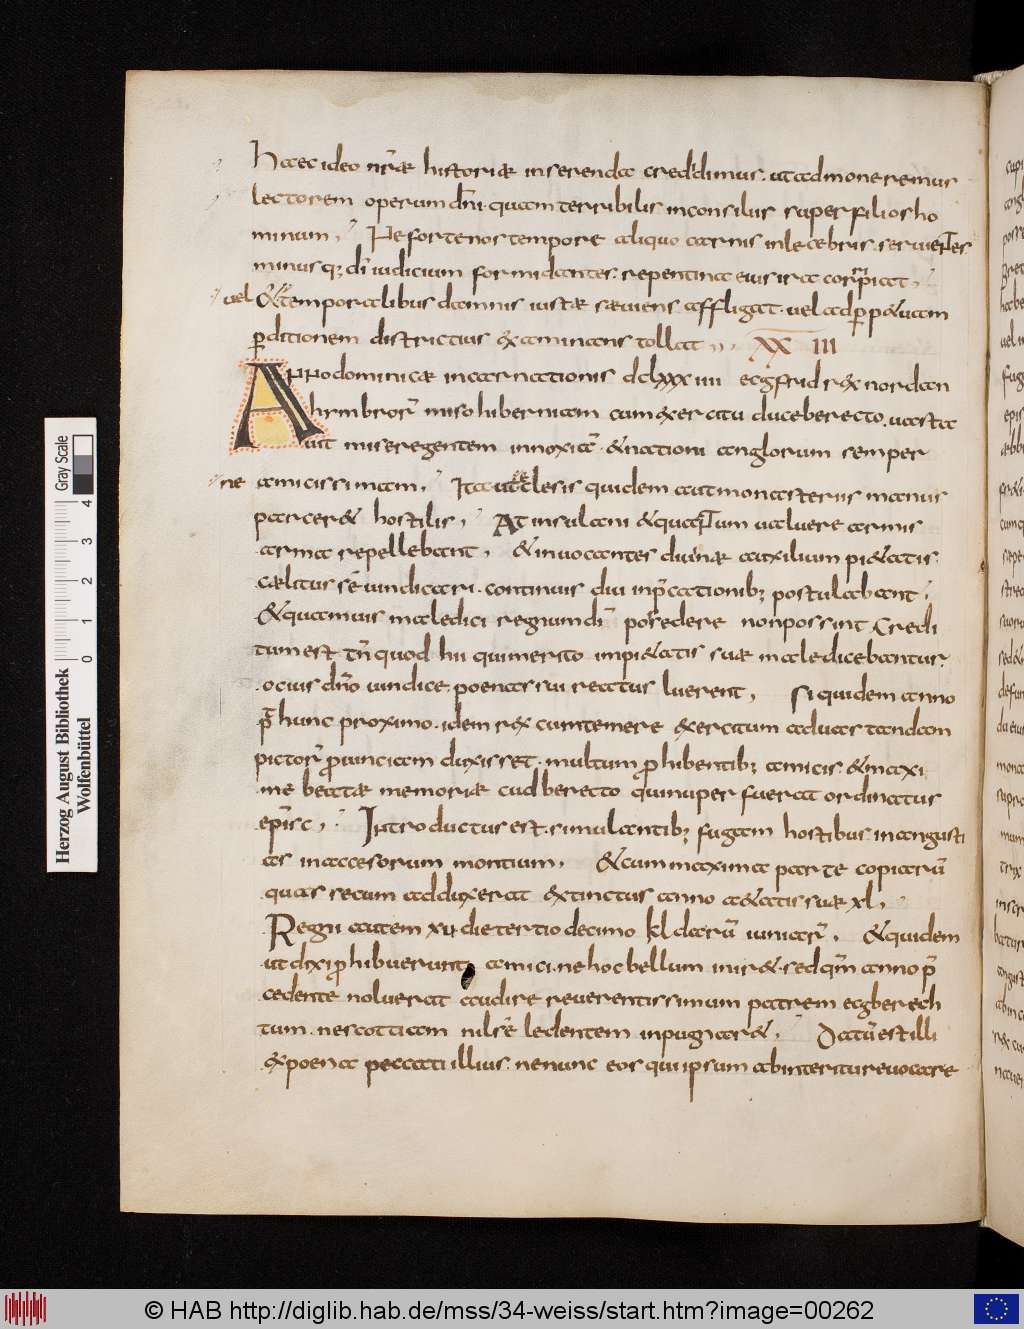 haec ideo nr̄ae historiae inserenda credidimus. ut admoneremus
lectorem operum dn̄i. quam terribilis in consiliis super filios ho
minum; Ne forte nos tempore aliquo carnis inlecebris. seruientes
minusq; dī iudicium formidantes. repentina eius ira corripiat;
uel &temporalibus damnis iustae saeuiens affligat. uel ad perp&uam
perditionem districtius examinans tollat; XXIII
ANno dominicae incarnationis dclxxxiiii ecgfrid rex nordan
hymbror̄ miso hiberniam cum exercitu duce berecto. uasta
uit misere gentem innoxiā &nationi anglorum semper
ne amicissimam; Ita ut ecclesiis quidem aut monasteriis manus
parcer& hostilis; At insulani &quantum ualuere armis
arma repellebant; &inuocantes diuinae auxilium pi&atis.
caelitus sē uindicari. continuis diu inp̄cationib; postulabant;
&quamuis maledici regnum dī possedere non possint. Credi
tum est tn̄ quod hii qui merito impi&atis suae maledicebantur.
ocius dn̄o uindice. poenas sui reatus luerent; Siquidem anno
p̄ hunc proximo. idem rex cum temere exercitum ad uastandam
pictor̄ prouinciam duxisset. multum prohibentib; amicis. &maxi
me beatae memoriae cudberecto qui nuper fuerat ordinatus
ep̄isc; Introductus est. simulantib; fugam hostibus in angusti
as inaccesorum montium; &cum maxima parte copiarū
quas secum adduxerat extinctus anno a&atis suae xl;
Regni autem xv die tertio decimo kl darū iuniar̄; &quidem
ut dixi prohibuerunt amici. ne hoc bellum inir&. sed qm̄ anno p̄
cedente noluerat audire reuerentissimum patrem ecgberech
tum. ne scottiam nil sē ledentem inpugnar&; Datū est illi
expoena peccati illius. ne nunc eos qui ipsum ab interitu reuocare
Herzog August Bibliothek
Wolfenbüttel
0 1 2 3 4
Gray Scale
© HAB http://diglib.hab.de/mss/34-weiss/start.htm?image=00262